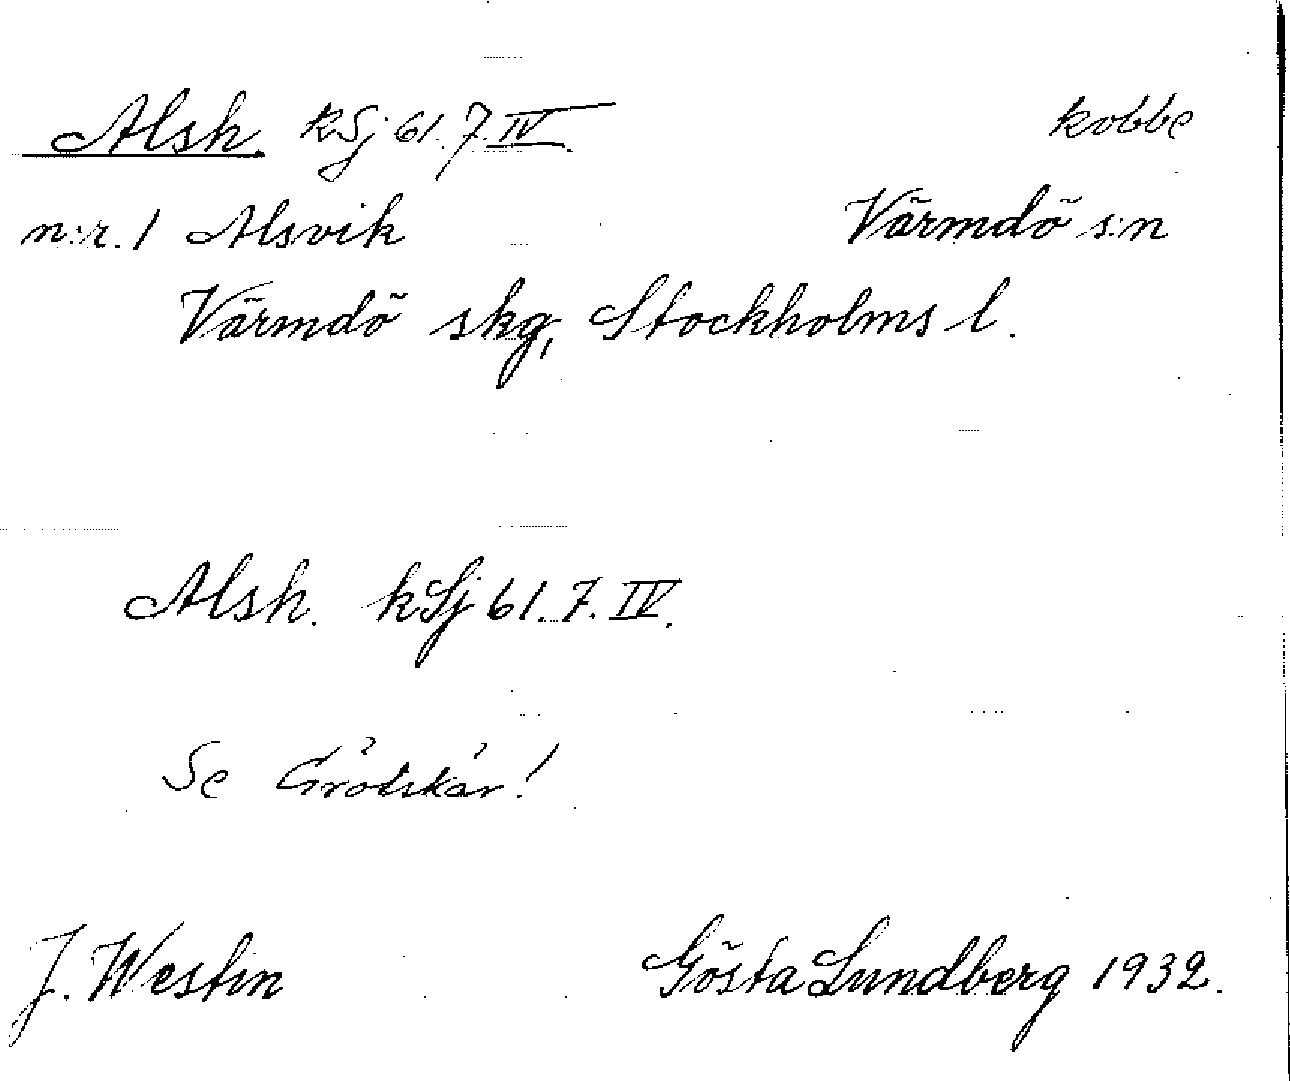 Alsk. kSj 61. 7. IV. kobbe
n:r. 1 Alsvik Värmdö s:n
Värmdö skg, Stockholms l.
Alsk. kSj 61. 7. IV.
Se Grötskär!
J. Westin Gösta Lundberg 1932.